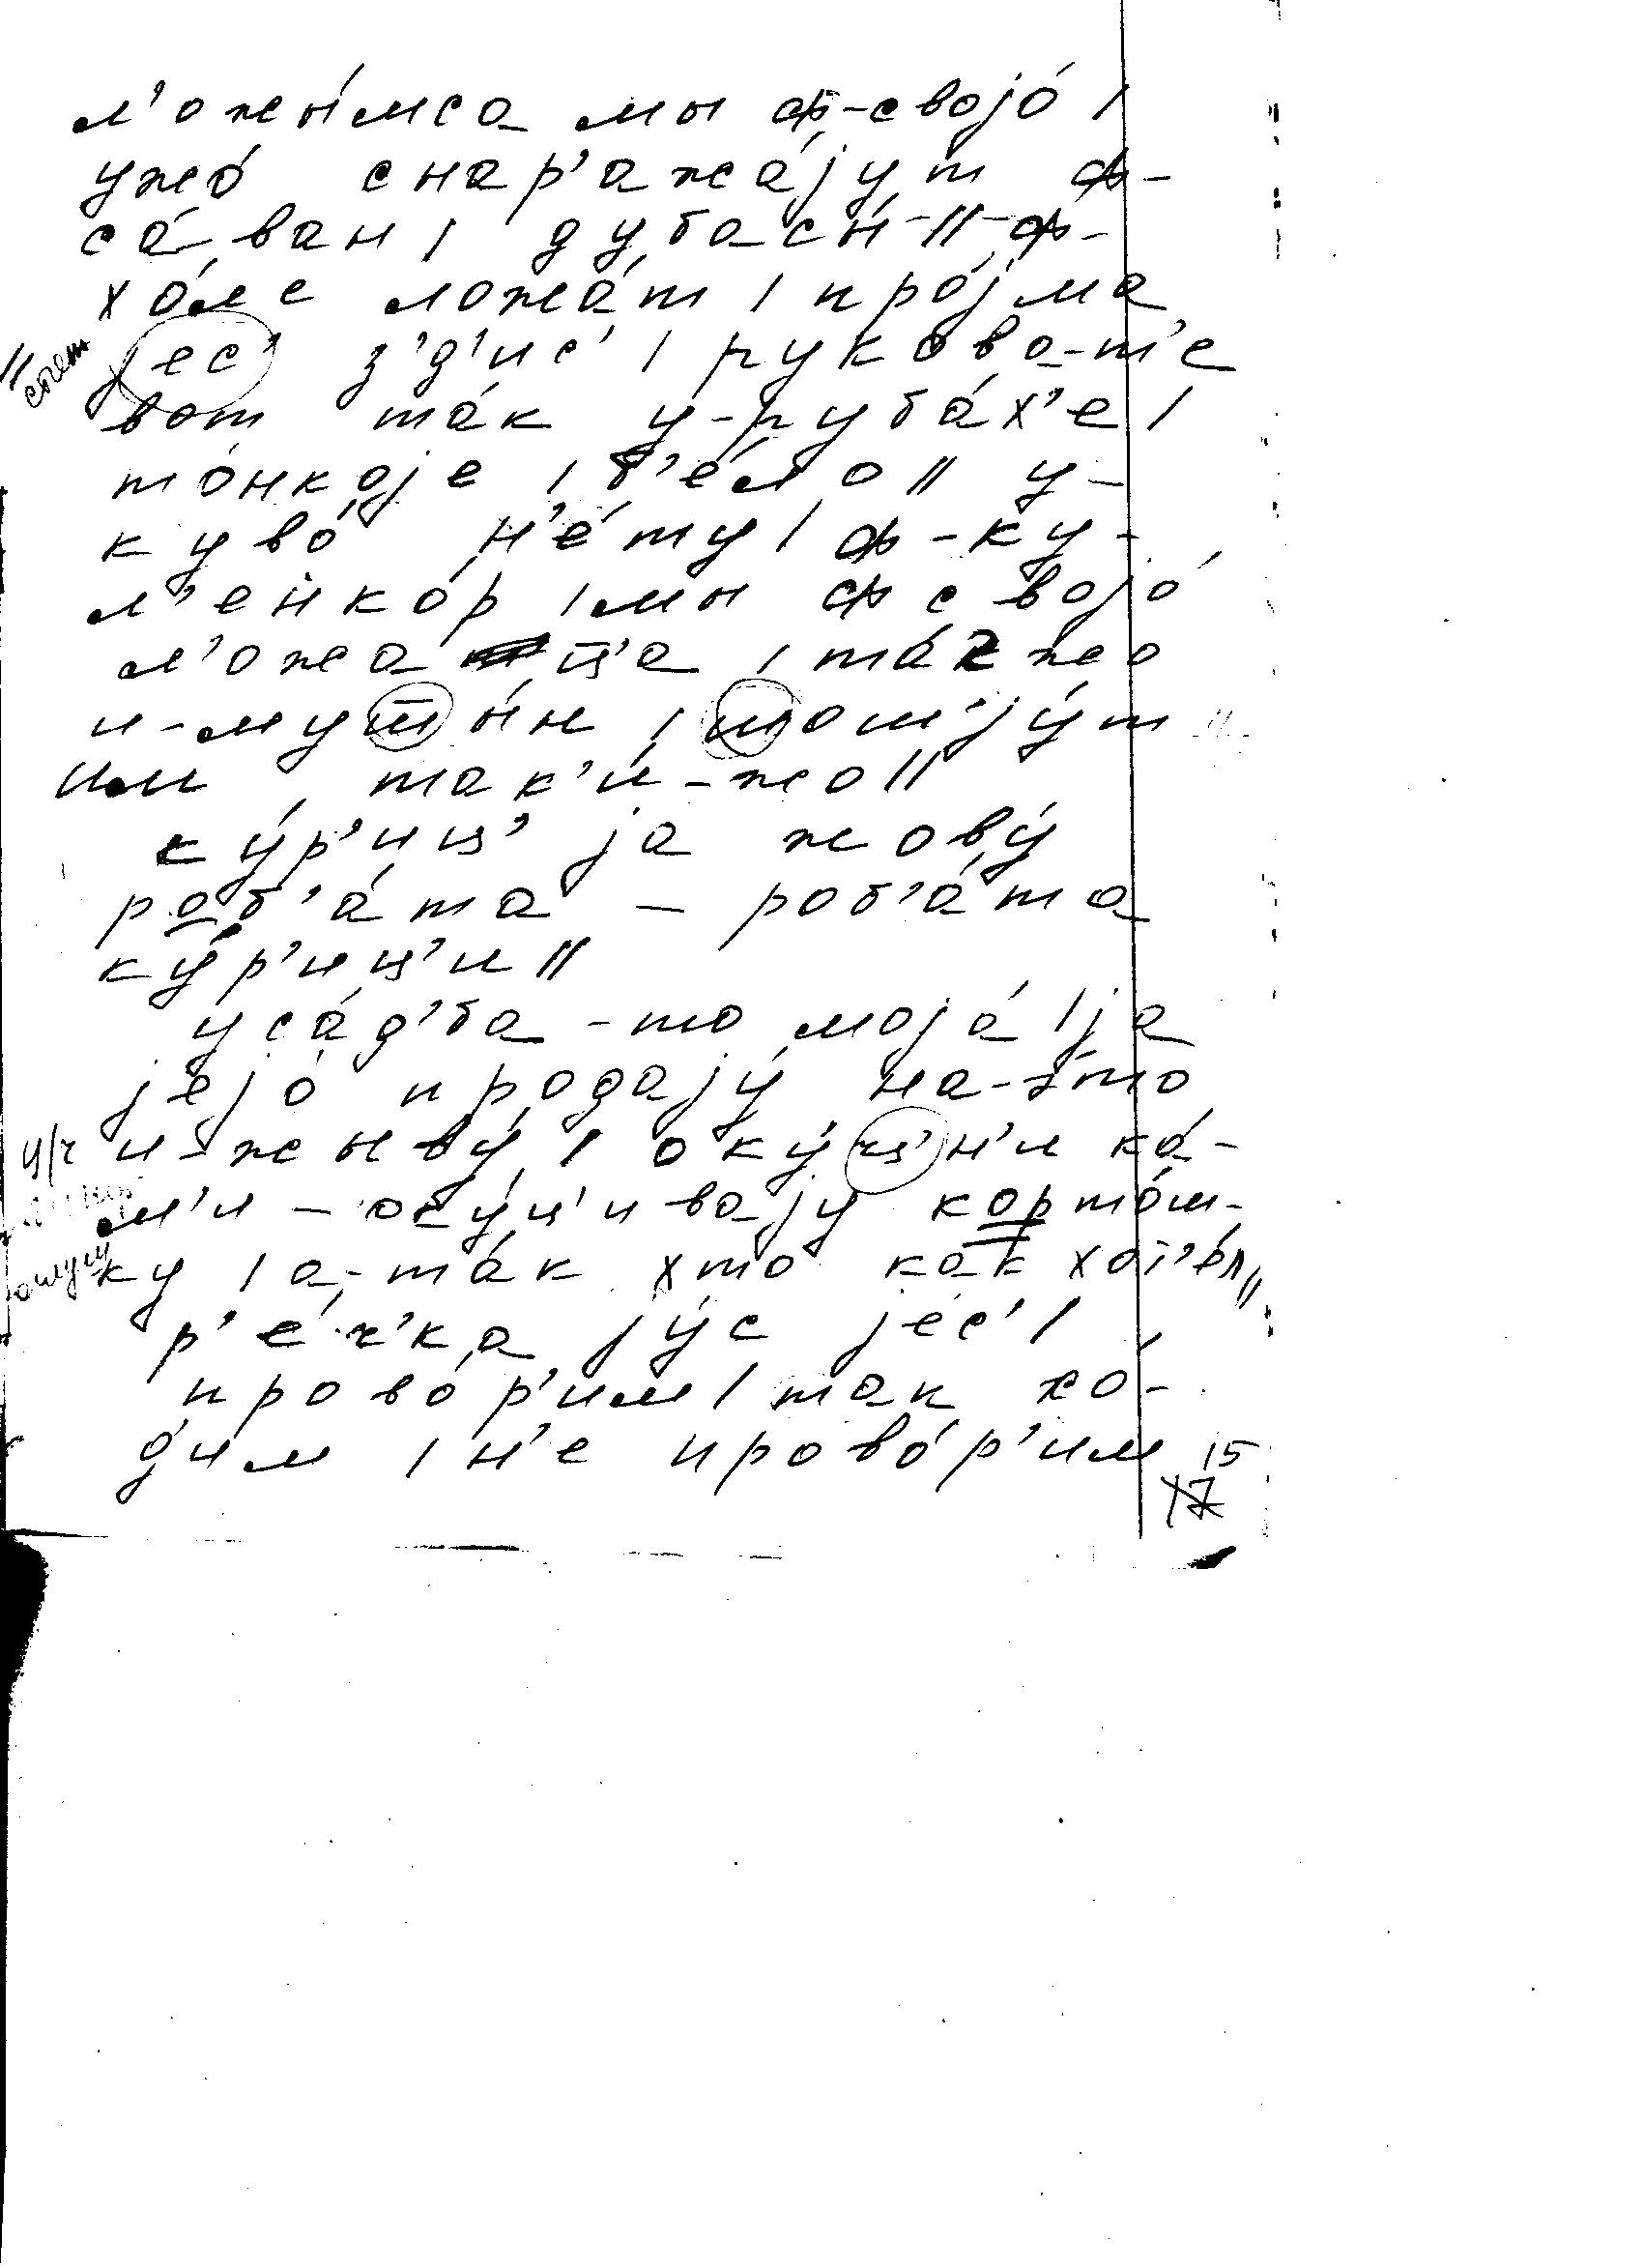 л’ожы́мса мы ф-своjо́ /
ужо́ снар’ажа́jут ф-
са́ван / дубасы́ // ф-
хо́лс ложа́т / про́jма
jес’ з’д’ис’ / рукова-т’е
вот та́к у-руба́х’е /
то́нкоjе / б’е́ло // у-
куво́ н’е́ту / ф-ку-
л’енко́р / мы ф своjо́
л’ожа ц’а / та́к жо
и-мушы́н / шош’jу́т
им так’и́-жо //
ку́р’иц’ jа жову́
роб’а́та – роб’а́та
ку́р’иц’и //
уса́д’ба-то моjа́ / jа
jеjо́ продаjу́ на-э́то
и-жыву́ / оку́ц’н’и ка́-
м’и – оку́ц’иваjу корто́ш-
ку / а-та́к хто как хот’е́л //
р’е́ч’ка jу́с jес’ /
прово́р’им / так хо́-
дим / н’е прово́р’им
15
17